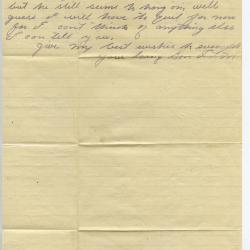 but he still seems to hang on, well
guess I will have to quit for now
for I can't think of anything else
I can tell you,
give my best wishes to everybody
your loving son